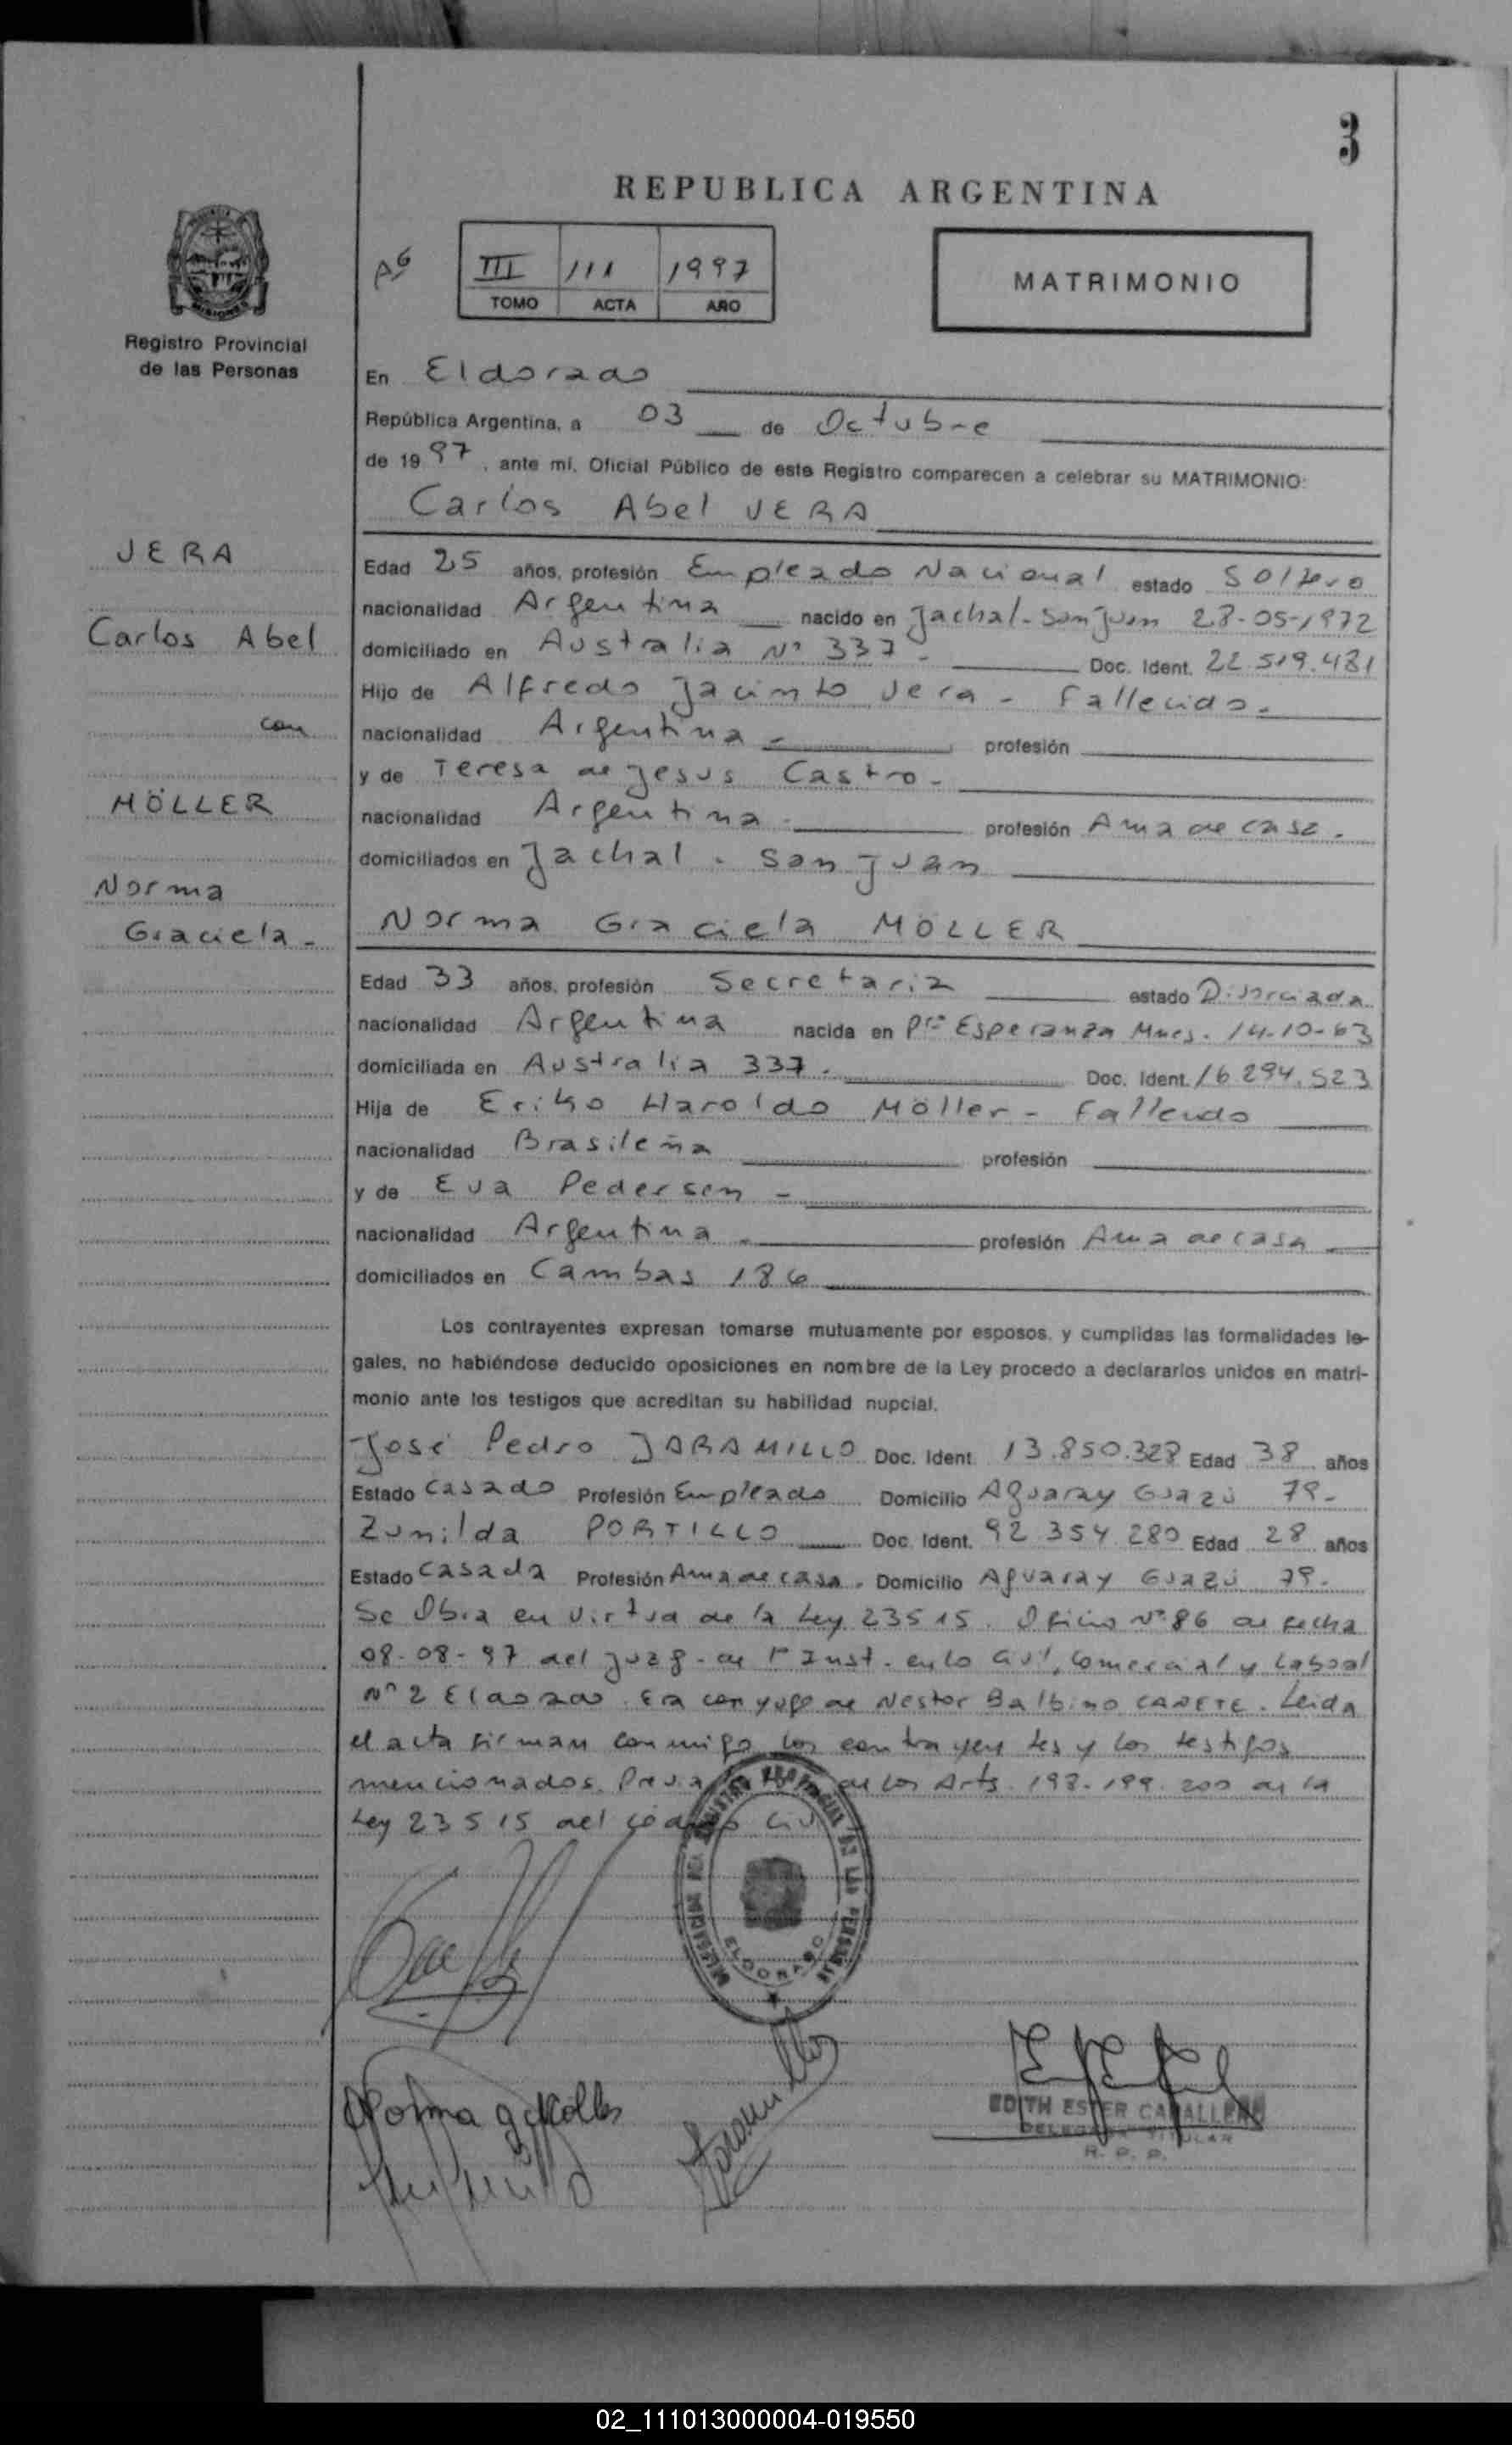 3
REPUBLICA ARGENTINA
III 111 1997
TOMO ACTA AÑO
MATRIMONIO
MISIONES
Registro Provincial
de las Personas
VERA
Carlos Abel
con
MÖLLER
Norma
Graciela -
En Eldorado
República Argentina, a 03 de Octubre
de 1997, ante mí, Oficial Público de este Registro comparecen a celebrar su MATRIMONIO:
Carlos Abel VERA
Edad 25 años, profesión Empleado Nacional estado Soltero
nacionalidad Argentina nacido en Jachal - San Juan 28-05-1972
domiciliado en Australia Nº 337 - Doc. Ident. 22.519.481
Hijo de Alfredo Jacinto Vera - Fallecido.
nacionalidad Argentina - profesión
y de Teresa de Jesus Castro -
nacionalidad Argentina - profesión Ama de casa.
domiciliados en Jachal - San Juan
Norma Graciela MÖLLER
Edad 33 años, profesión Secretaria estado Divorciada
nacionalidad Argentina nacida en Pto Esperanza Mnes. 14-10-63
domiciliada en Australia 337. Doc. Ident. 16.294.523
Hija de Eriko Haroldo Möller - Fallecido
nacionalidad Brasileña profesión
y de Eva Pedersen -
nacionalidad Argentina - profesión Ama de casa
domiciliados en Cambas 186
Los contrayentes expresan tomarse mutuamente por esposos, y cumplidas las formalidades le-
gales, no habiéndose deducido oposiciones en nombre de la Ley procedo a declararlos unidos en matri-
monio ante los testigos que acreditan su habilidad nupcial.
José Pedro JARAMILLO Doc. Ident. 13.850.328 Edad 38 años
Estado Casado Profesión Empleado Domicilio Aguaray Guazú 79-
Zunilda PORTILLO Doc. Ident. 92 354 280 Edad 28 años
Estado Casada Profesión Ama de casa. Domicilio Aguaray Guazú 79-
Se Obra en virtud de la Ley 23515. Oficio Nº 86 de fecha
08-08-97 del Juzg. de 1º Inst. en lo Civil, Comercial y Laboral
Nº 2 Eldorado. Era conyuge de Nestor Balbino CAÑETE. Leida
el acta firman conmigo los contrayentes y los testigos
mencionados. Previa de los Arts. 198-199-200 de la
Ley 23515 del código Civil
ELDORADO
Norma G Möller
Jaramillo
EDITH ESTER CABALLERO
DELEGADA TITULAR
R. P. P.
02_111013000004-019550